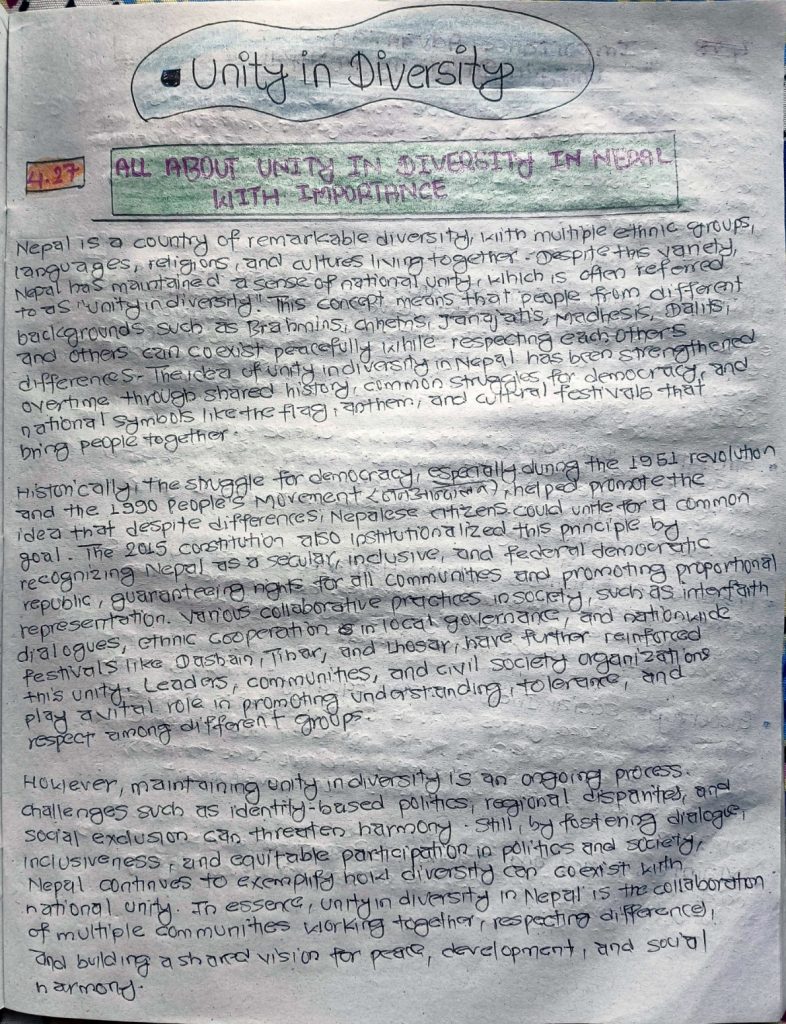 Unity in Diversity
4.27
ALL ABOUT UNITY IN DIVERSITY IN NEPAL
WITH IMPORTANCE
Nepal is a country of remarkable diversity, with multiple ethnic groups,
languages, religions, and cultures living together. Despite this variety,
Nepal has maintained a sense of national unity, which is often referred
to as "unity in diversity". This concept means that people from different
backgrounds such as Brahmins, Chhetris, Janajatis, Madhesis, Dalits,
and others can coexist peacefully while respecting each others
differences. The idea of unity in diversity in Nepal has been strengthened
overtime through shared history, common struggles for democracy, and
national symbols like the flag, anthem, and cultural festivals that
bring people together.
Historically, the struggle for democracy, especially during the 1951 revolution
and the 1990 People's Movement (जनआन्दोलन), helped promote the
idea that despite differences, Nepalese citizens could unite for a common
goal. The 2015 constitution also institutionalized this principle by
recognizing Nepal as a secular, inclusive, and federal democratic
republic, guaranteeing rights for all communities and promoting proportional
representation. Various collaborative practices in society, such as interfaith
dialogues, ethnic cooperation in local governance, and nationwide
festivals like Dashain, Tihar, and Lhosar, have further reinforced
this unity. Leaders, communities, and civil society organizations
play a vital role in promoting understanding, tolerance, and
respect among different groups.
However, maintaining unity in diversity is an ongoing process.
Challenges such as identity-based politics, regional disparities, and
social exclusion can threaten harmony. Still, by fostering dialogue,
inclusiveness, and equitable participation in politics and society,
Nepal continues to exemplify how diversity can coexist with
national unity. In essence, unity in diversity in Nepal is the collaboration
of multiple communities working together, respecting differences,
and building a shared vision for peace, development, and social
harmony.